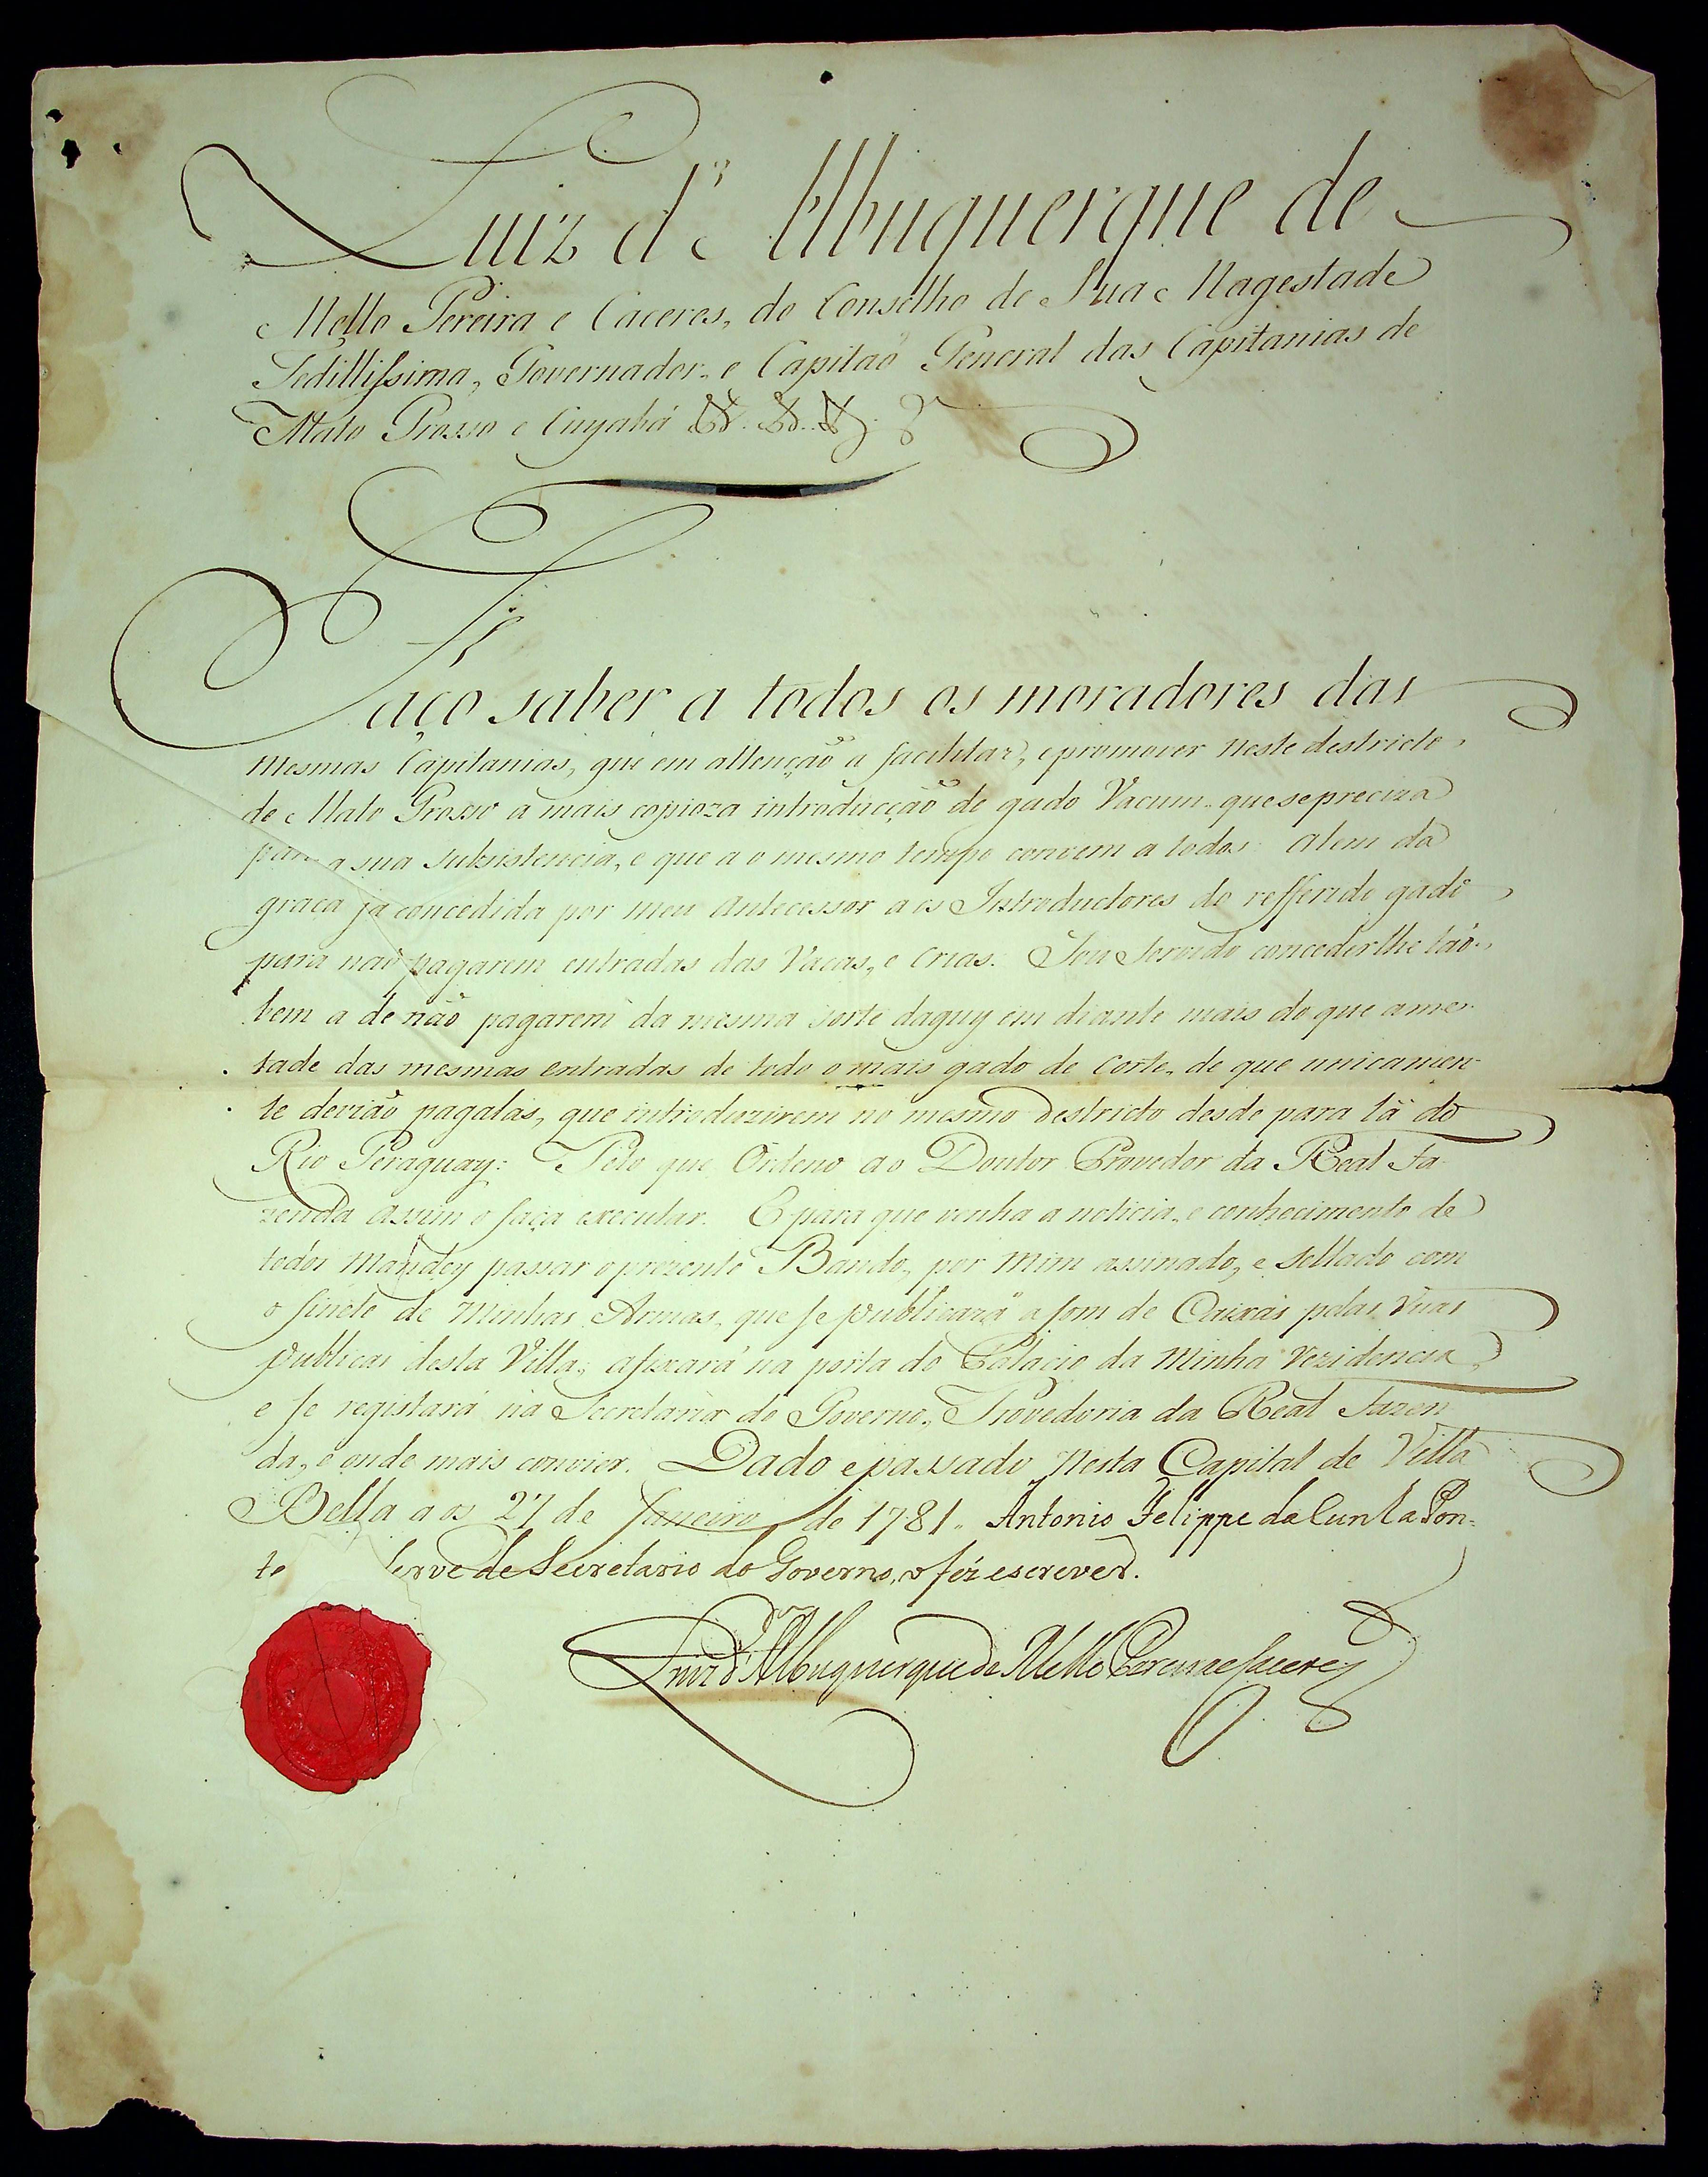 Luiz d'Albuquerque de
Mello Pereira e Caceres, do Conselho de Sua Magestade
Fedillissima, Governador, e Capitaõ General das Capitanias de
Mato Grosso e Cuyabá &. &. &.
Faço saber a todos os moradores das
mesmas Capitanias, que em attenção a facilitar, e promover neste destricto
de Mato Grosso a mais copioza introducção de gado Vacum que se preciza
para a sua subsistencia, e que ao mesmo tempo convem a todos: Alem da
graça já concedida por meu Antecessor aos Introductores do refferido gado
para naõ pagarem entradas das Vacas, e Crias. Sou Servido concederlhe taõ-
bem a de não pagarem da mesma sorte daquy em diante mais do que ame-
tade das mesmas entradas de todo o mais gado de Corte, de que unicamen-
te devião pagalas, que introduzirem no mesmo destricto desde para lá do
Rio Peraguay: Pelo que Ordeno ao Doutor Provedor da Real Fa-
zenda assim o faça executar. E para que venha a noticia, e conhecimento de
todos Mandey passar o prezente Bando, por mim assinado, e sellado com
o sinete de Minhas Armas, que se publicará a som de Caixas pelas ruas
publicas desta Villa, afixará na porta do Palacio da Minha rezidencia,
e se registará na Secretaria do Governo, Provedoria da Real Fazen
da, e onde mais convier. Dado e passado nesta Capital de Villa
Bella aos 27 de Janeiro de 1781. Antonio Felippe da Cunha Pon-
te serve de Secretario do Governo, o fêz escrever.
Luiz d'Albuquerque de Mello Pereira e Caceres